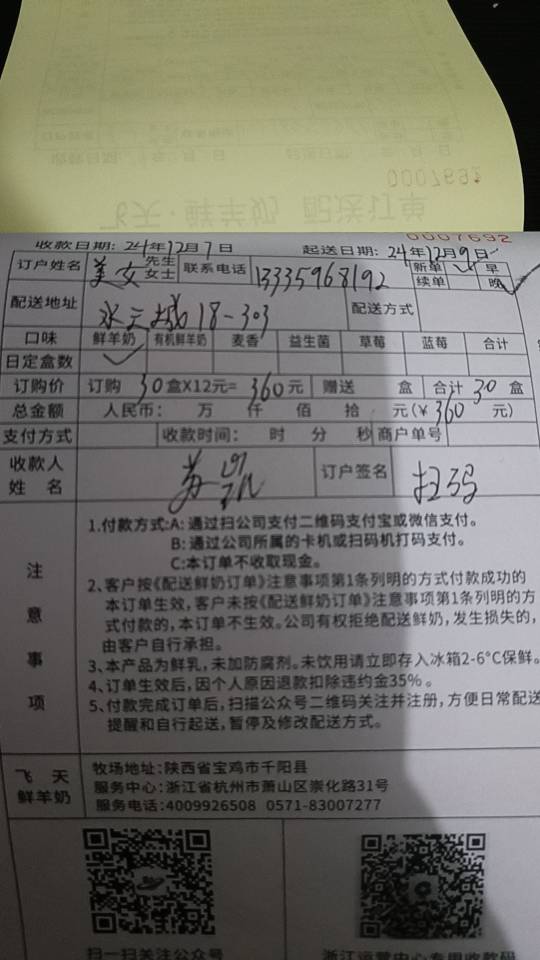 0007692
收款日期: 24年12月7日 起送日期: 24年12月9日
订户姓名 美女 先生 女士 联系电话 13335968192 新单 早 续单 晚
配送地址 18-303 配送方式
口味 鲜羊奶 有机鲜羊奶 麦香 益生菌 草莓 蓝莓 合计
日定盒数
订购价 订购 30盒X12元= 360元 赠送 盒 合计 30 盒
总金额 人民币: 万 仟 佰 拾 元(¥360 元)
支付方式 收款时间: 时 分 秒 商户单号
收款人 姓名 苏 订户签名 扫码
注意事项
1.付款方式:A: 通过扫公司支付二维码支付宝或微信支付。
B: 通过公司所属的卡机或扫码机打码支付。
C:本订单不收取现金。
2、客户按《配送鲜奶订单》注意事项第1条列明的方式付款成功的
本订单生效,客户未按《配送鲜奶订单》注意事项第1条列明的方
式付款的,本订单不生效。公司有权拒绝配送鲜奶,发生损失的,
由客户自行承担。
3、本产品为鲜乳,未加防腐剂。未饮用请立即存入冰箱2-6°C保鲜。
4、订单生效后,因个人原因退款扣除违约金35%。
5、付款完成订单后,扫描公众号二维码关注并注册,方便日常配送
提醒和自行起送,暂停及修改配送方式。
飞天 鲜羊奶
牧场地址:陕西省宝鸡市千阳县
服务中心:浙江省杭州市萧山区崇化路31号
服务电话:4009926508 0571-83007277
扫一扫关注公众号 浙江运营中心专用收款码